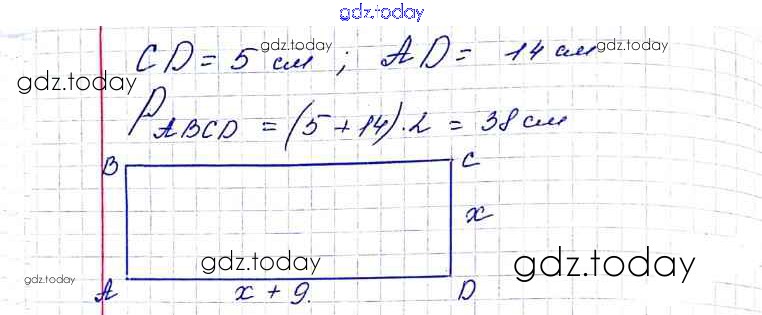 gdz.today
CD = 5 см ; AD = 14 см
gdz.today gdz.today
gdz.today
P ABCD = (5 + 14) · 2 = 38 см
B C
x
gdz.today gdz.today
gdz.today
A x + 9. D